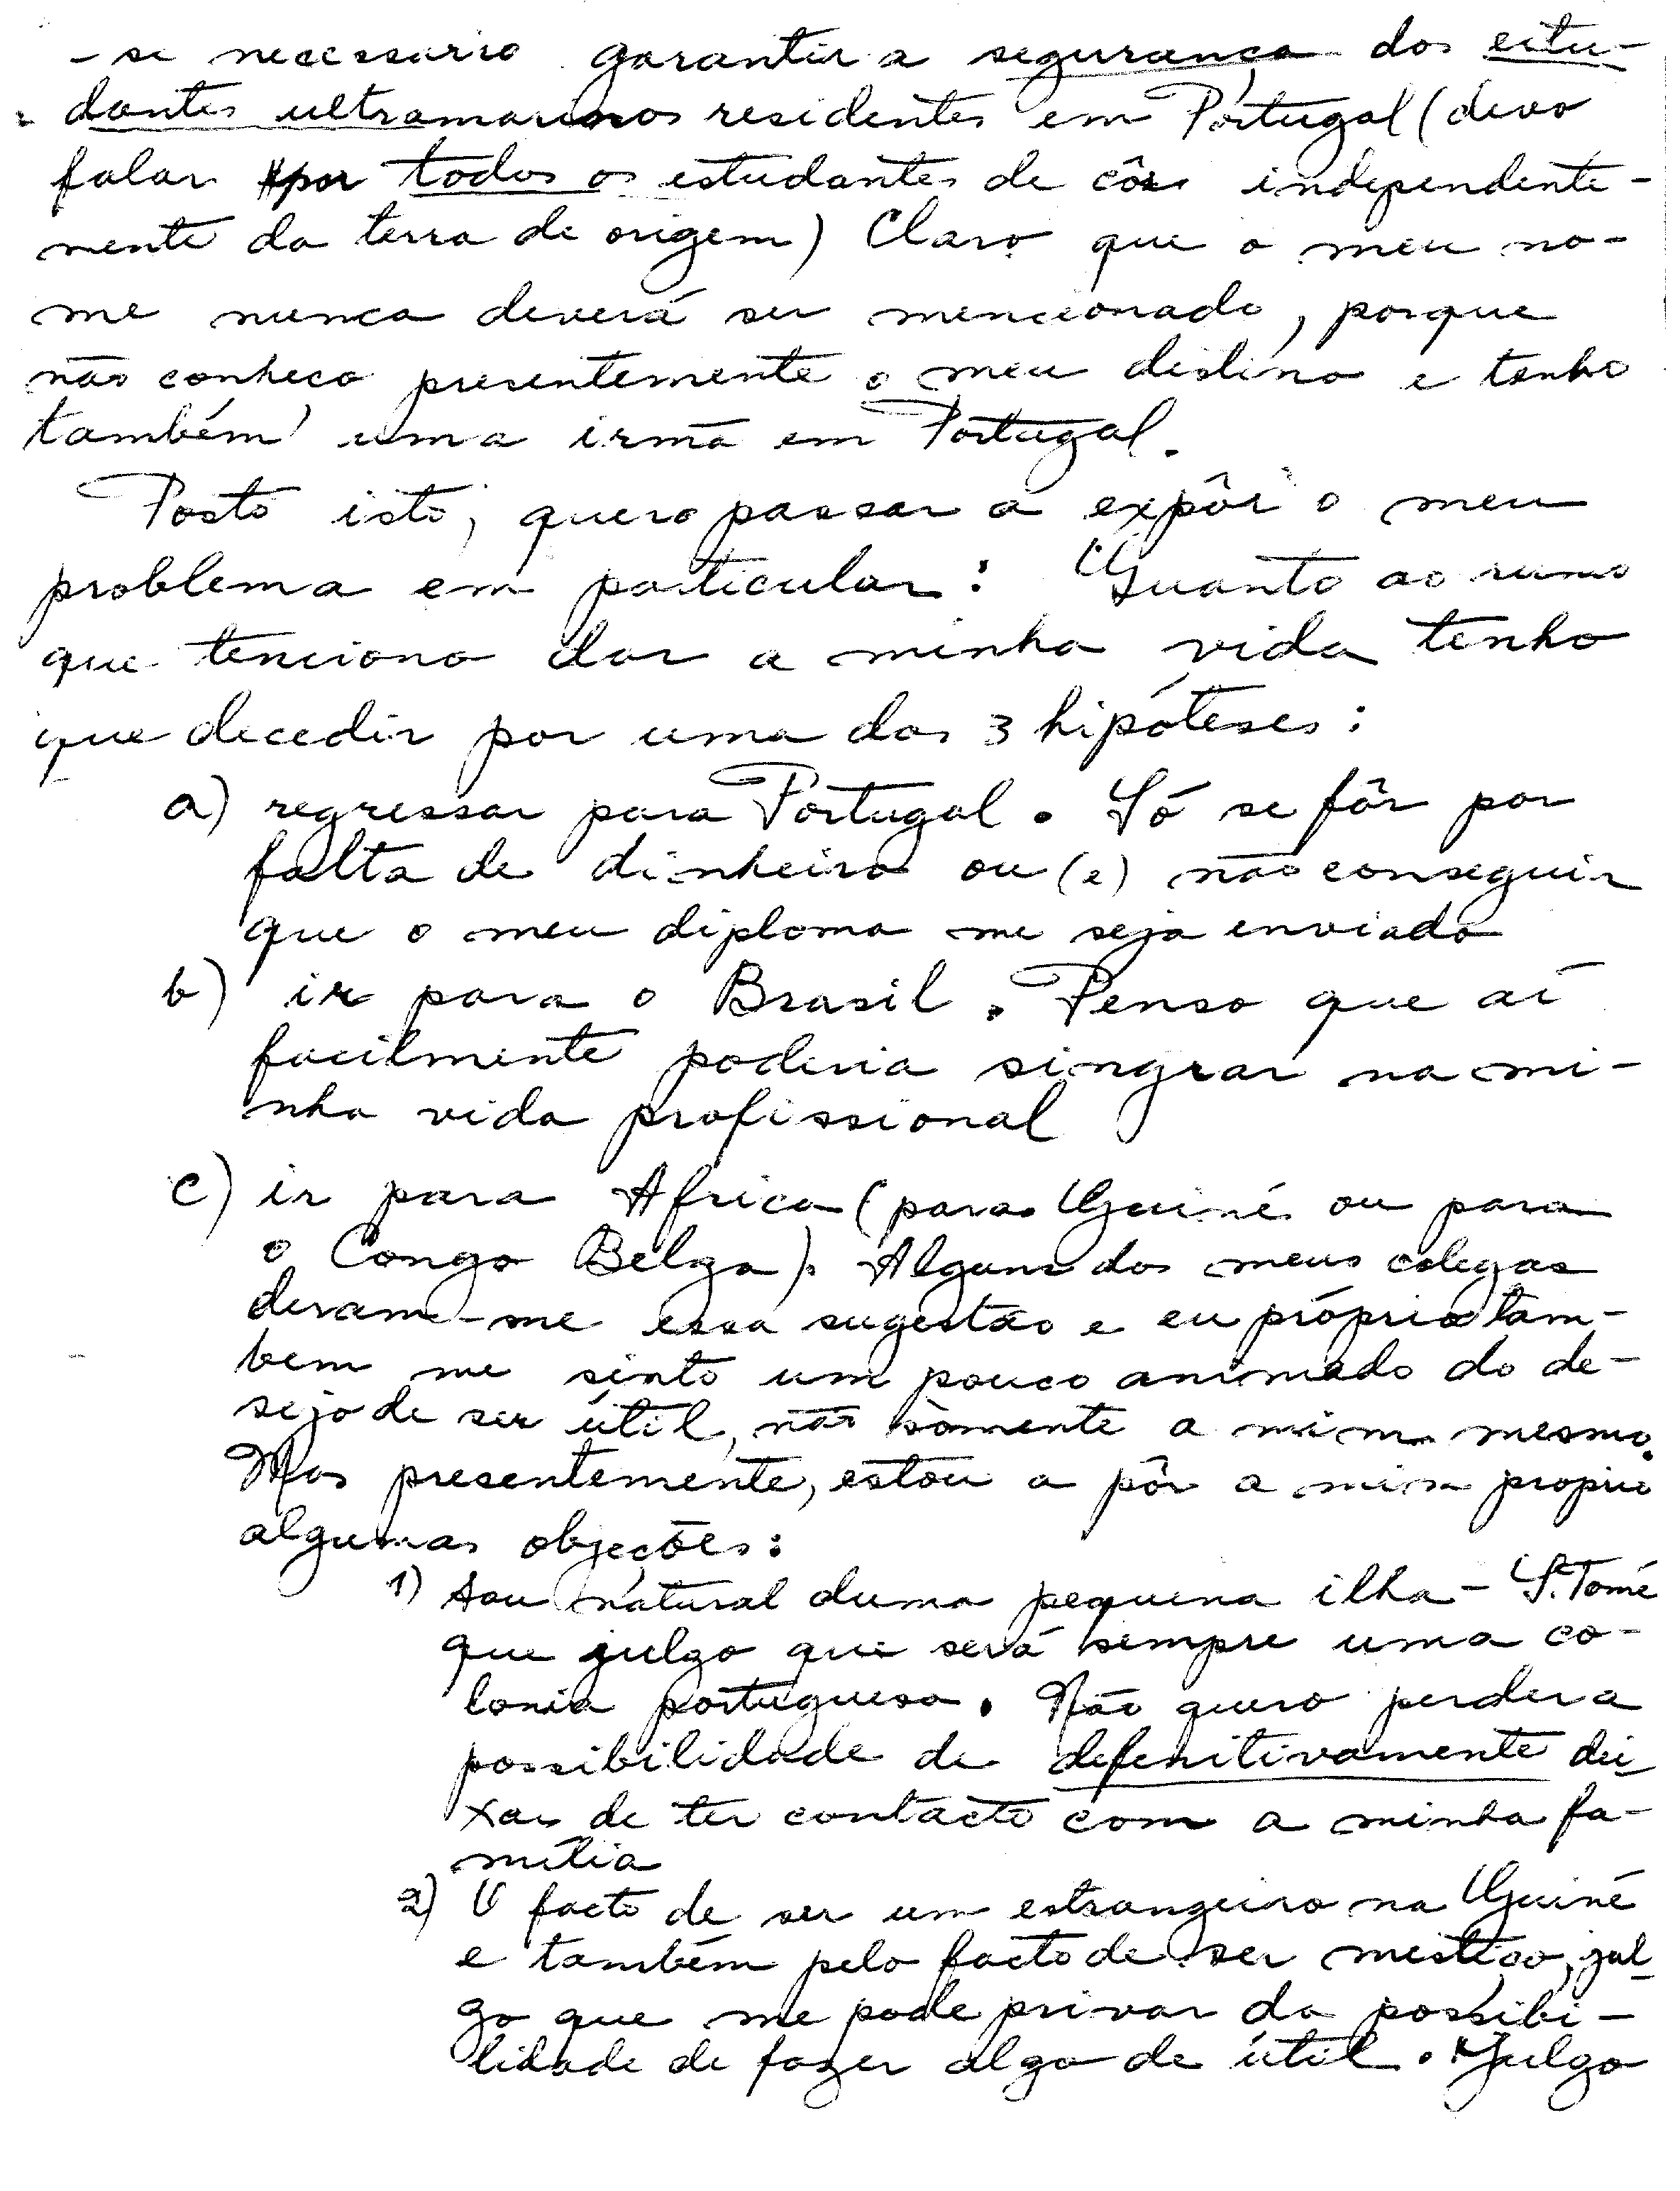 -se necessario garantir a segurança dos estu-
dantes ultramarinos residentes em Portugal (devo
falar por todos os estudantes de côr independente-
mente da terra de origem) Claro que o meu no-
me nunca deverá ser mencionado, porque
não conheco presentemente o meu destino e tenho
também uma irmã em Portugal.
Posto isto, quero passar a expôr o meu
problema em particular: Quanto ao rumo
que tenciono dar a minha vida tenho
que decedir por uma das 3 hipóteses:
a) regressar para Portugal. Só se fôr por
falta de dinheiro ou (e) não conseguir
que o meu diploma me seja enviado
b) ir para o Brasil. Penso que aí
facilmente poderia singrar na mi-
nha vida profissional
c) ir para Africa (para Guiné ou para
o Congo Belga). Alguns dos meus colegas
deram-me essa sugestão e eu próprio tam-
bem me sinto um pouco animado do de-
sejo de ser útil, não sòmente a mim mesmo.
Mas presentemente, estou a pôr a mim proprio
algumas objeções:
1) Sou natural duma pequena ilha - S. Tomé
que julgo que será sempre uma co-
lonia portuguesa. Não quero perder a
possibilidade de defenitivamente dei-
xar de ter contacto com a minha fa-
mília
2) O facto de ser um estrangeiro na Guiné
e também pelo facto de ser mestiço, jul-
go que me pode privar da possibi-
lidade de fazer algo de útil. Julgo